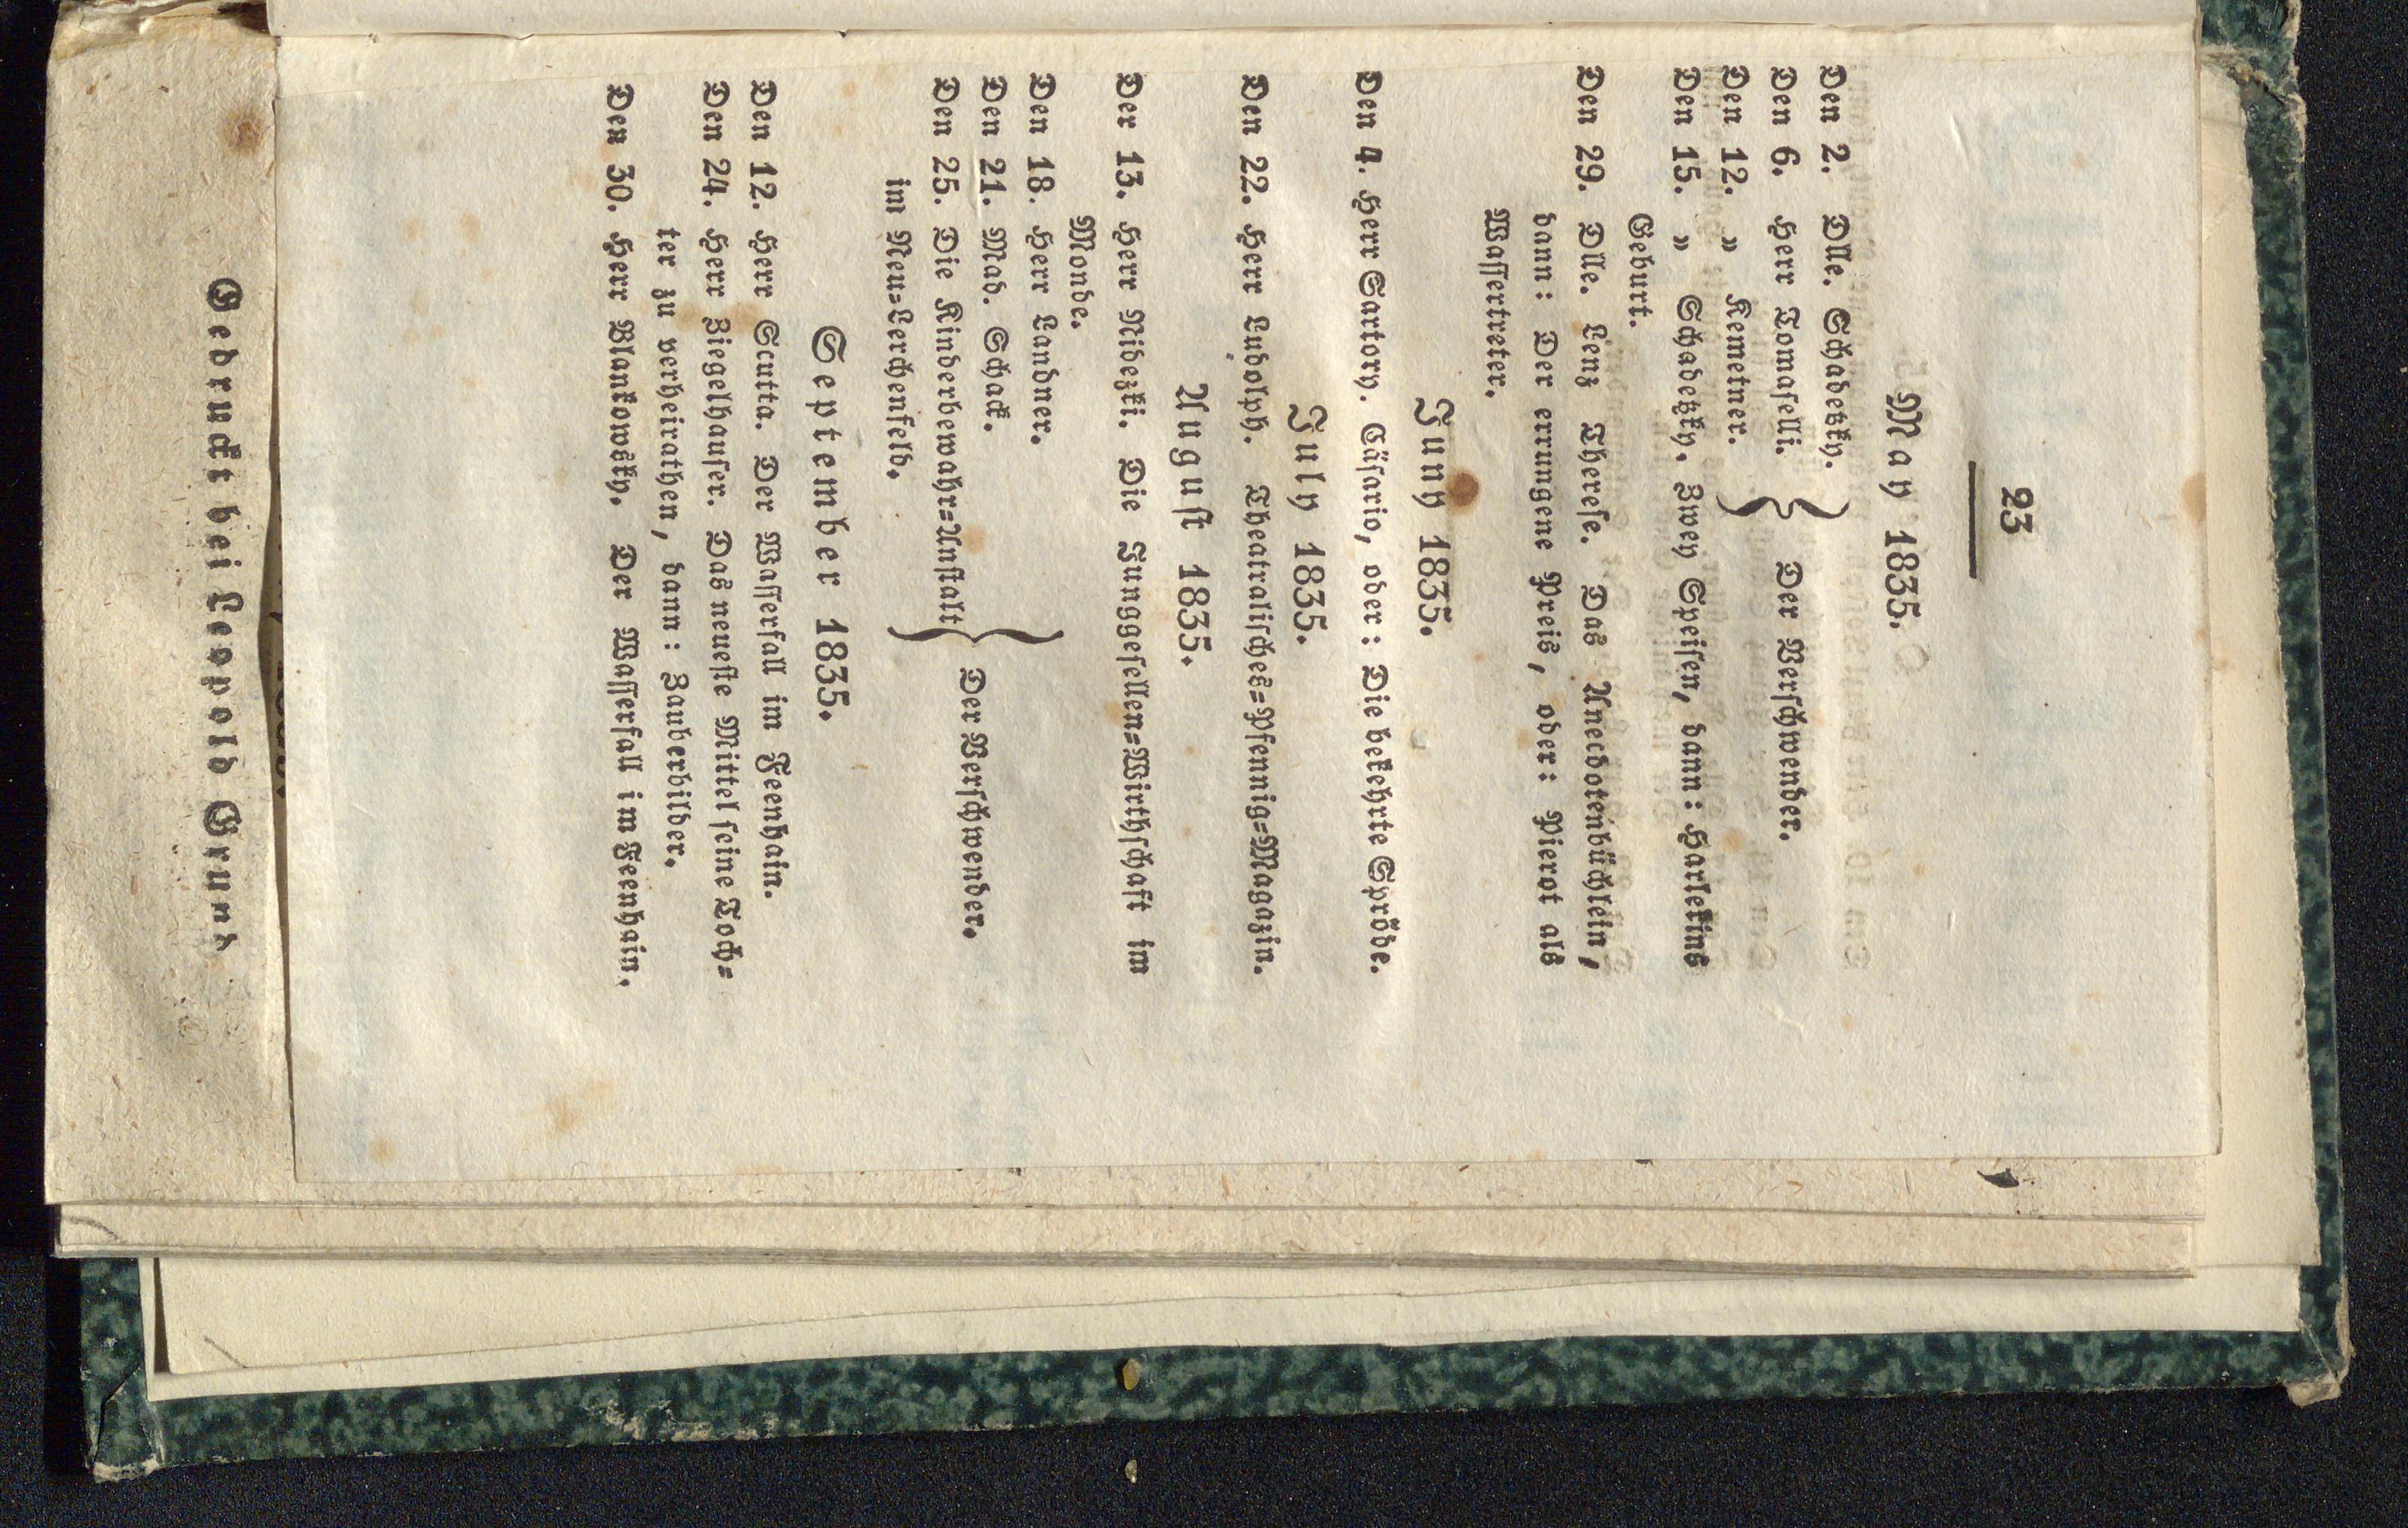 23
May 1835.
Den 2. Dlle. Schadetzky.
Den 6. Herr Tomaselli.
Den 12. » Kemetner.
} Der Verschwender.
Den 15. » Schadetzky. Zwey Speisen, dann: Harlekins
Geburt.
Den 29. Dlle. Lenz Therese. Das Anecdotenbüchlein,
dann: Der errungene Preis, oder: Pierot als
Wassertreter.
Juny 1835.
Den 4. Herr Sartory. Cäsario, oder: Die bekehrte Spröde.
July 1835.
Den 22. Herr Ludolph. Theatralisches=Pfennig=Magazin.
August 1835.
Der 13. Herr Nidetzki. Die Junggesellen=Wirthschaft im
Monde.
Den 18. Herr Landner.
Den 21. Mad. Schack.
Den 25. Die Kinderbewahr=Anstalt
im Neu=Lerchenfeld.
} Der Verschwender.
September 1835.
Den 12. Herr Scutta. Der Wasserfall im Feenhain.
Den 24. Herr Ziegelhauser. Das neueste Mittel seine Toch=
ter zu verheirathen, dann: Zauberbilder.
Den 30. Herr Blankowsky. Der Wasserfall im Feenhain.
Gedruckt bei Leopold Grund